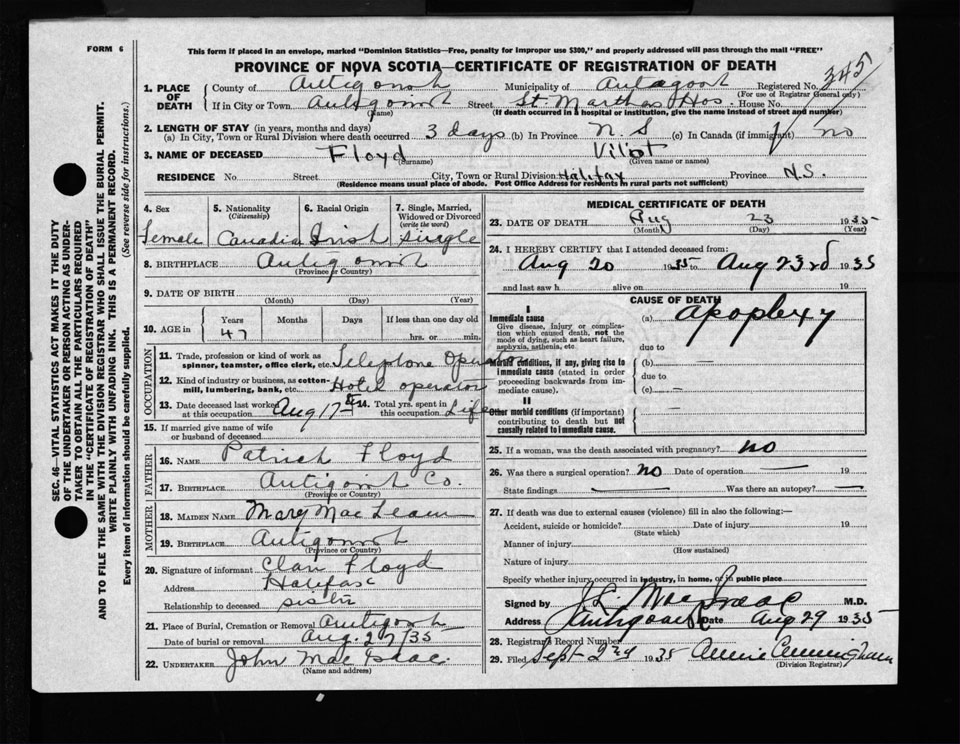 FORM 6
This form if placed in an envelope, marked "Dominion Statistics—Free, penalty for improper use $300," and properly addressed will pass through the mail "FREE"
PROVINCE OF NOVA SCOTIA—CERTIFICATE OF REGISTRATION OF DEATH
345
1. PLACE OF DEATH
County of Antigonish Municipality of Registered No.
(For use of Registrar General only)
If in City or Town Antigonish Street St. Marthas Hos. House No.
(Name) (If death occurred in a hospital or institution, give the name instead of street and number)
2. LENGTH OF STAY (in years, months and days)
(a) In City, Town or Rural Division where death occurred 3 days (b) In Province N.S (c) In Canada (if immigrant) no
3. NAME OF DECEASED Floyd Vilot
(Surname) (Given name or names)
RESIDENCE No. Street City, Town or Rural Division Halifax Province N.S.
(Residence means usual place of abode. Post Office Address for residents in rural parts not sufficient)
4. Sex 5. Nationality (Citizenship) 6. Racial Origin 7. Single, Married, Widowed or Divorced (write the word)
Female Canadian Irish Single
8. BIRTHPLACE Antigonish
(Province or Country)
9. DATE OF BIRTH
(Month) (Day) (Year)
10. AGE in Years Months Days If less than one day old
47 hrs. or min.
OCCUPATION
11. Trade, profession or kind of work as spinner, teamster, office clerk, etc. Telephone Operator
12. Kind of industry or business, as cotton-mill, lumbering, bank, etc. Hotel operator
13. Date deceased last worked at this occupation Aug 17th 14. Total yrs. spent in this occupation Life
15. If married give name of wife or husband of deceased
FATHER
16. NAME Patrick Floyd
17. BIRTHPLACE Antigonish Co.
(Province or Country)
MOTHER
18. MAIDEN NAME Mary MacLean
19. BIRTHPLACE Antigonish
(Province or Country)
20. Signature of informant Clare Floyd
Address Halifax
Relationship to deceased sister
21. Place of Burial, Cremation or Removal Antigonish
Date of burial or removal Aug. 27/35
22. UNDERTAKER John MacIsaac.
(Name and address)
MEDICAL CERTIFICATE OF DEATH
23. DATE OF DEATH Aug 23 1935
(Month) (Day) (Year)
24. I HEREBY CERTIFY that I attended deceased from:
Aug 20 1935 to Aug 23rd 1935
and last saw h alive on 19
CAUSE OF DEATH
I
Immediate cause
Give disease, injury or complication which caused death, not the mode of dying, such as heart failure, asphyxia, asthenia, etc
(a) Apoplexy
due to
Morbid conditions, if any, giving rise to immediate cause (stated in order proceeding backwards from immediate cause).
(b) —
due to
(c) —
II
Other morbid conditions (if important) contributing to death but not causally related to immediate cause.
II
25. If a woman, was the death associated with pregnancy? no
26. Was there a surgical operation? no Date of operation — 19
State findings — Was there an autopsy? —
27. If death was due to external causes (violence) fill in also the following:—
Accident, suicide or homicide? Date of injury 19
(State which)
Manner of injury
(How sustained)
Nature of injury
Specify whether injury occurred in industry, in home, or in public place
Signed by MacIsaac M.D.
Address Antigonish Date Aug 29 1935
28. Registrar's Record Number
29. Filed Sept 2nd 1935 Annie Cunningham
(Division Registrar)
SEC. 46—VITAL STATISTICS ACT MAKES IT THE DUTY OF THE UNDERTAKER OR PERSON ACTING AS UNDERTAKER TO OBTAIN ALL THE PARTICULARS REQUIRED IN THE "CERTIFICATE OF REGISTRATION OF DEATH" AND TO FILE THE SAME WITH THE DIVISION REGISTRAR WHO SHALL ISSUE THE BURIAL PERMIT.
WRITE PLAINLY WITH UNFADING INK. THIS IS A PERMANENT RECORD.
Every item of Information should be carefully supplied. (See reverse side for instructions.)